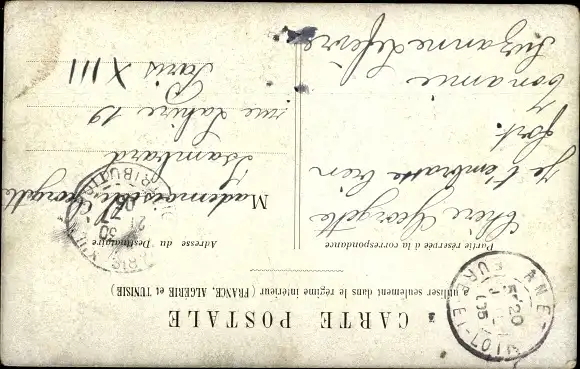 CARTE POSTALE
à utiliser seulement dans le régime intérieur (FRANCE, ALGÉRIE et TUNISIE)
Partie réservée à la correspondance
Chère Georgette
Je t'embrasse bien
fort.
Ton amie
Suzanne Lefèvre
Adresse du Destinataire
Mademoiselle Georgette
Isambard
rue Lahire 19
Paris XIII
EURE-E
20
05
PARIS
DISTRIBUTION
30
05